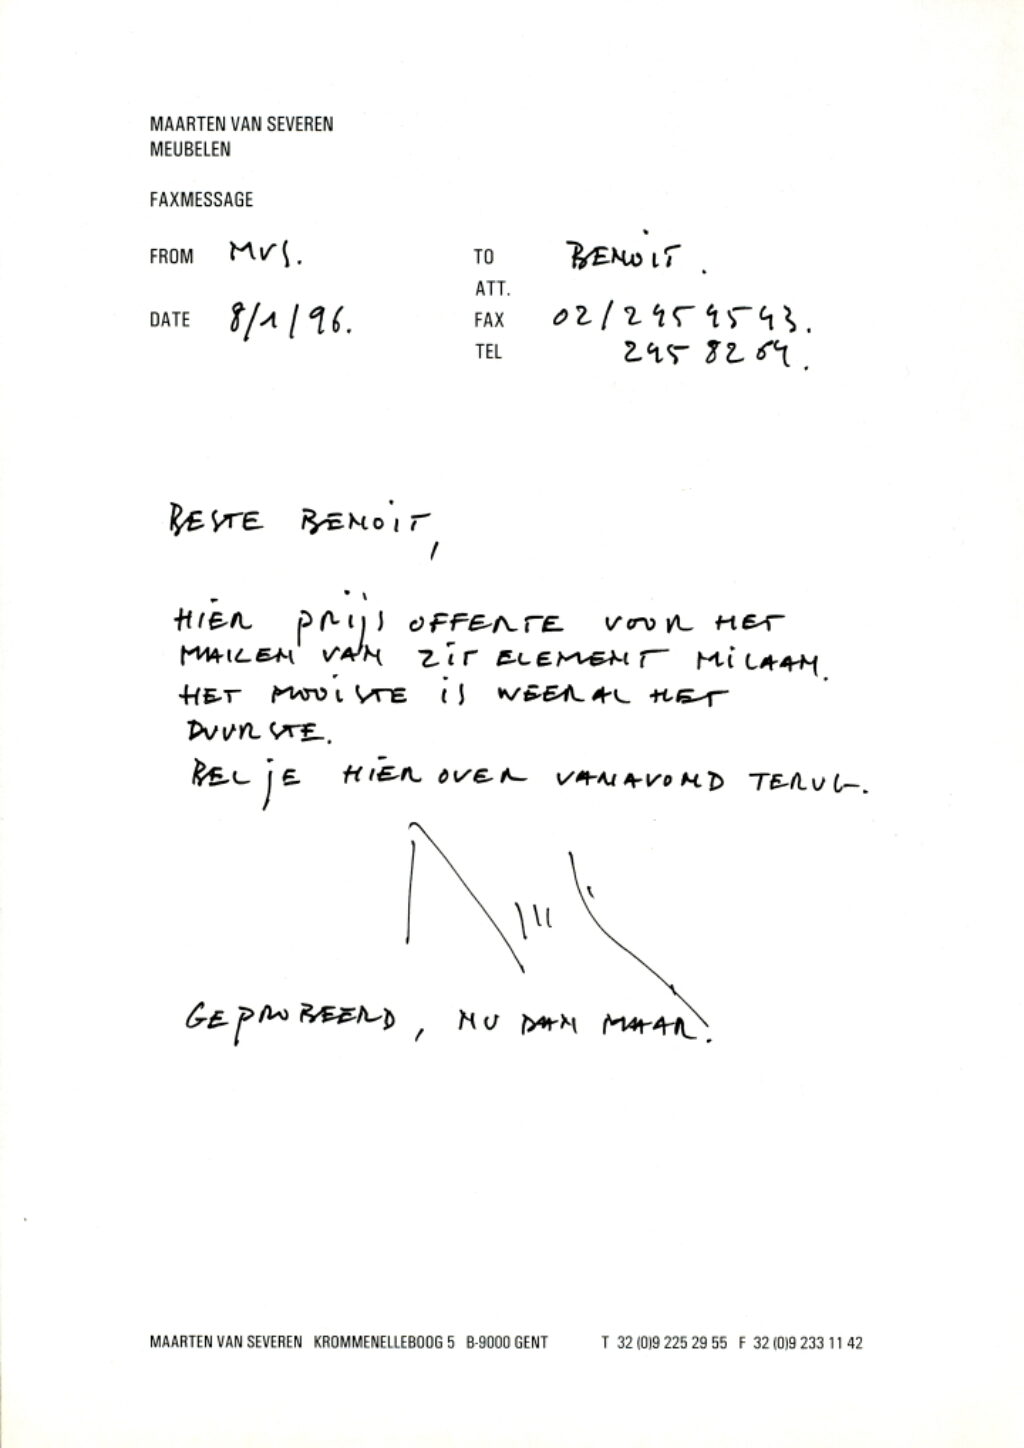 MAARTEN VAN SEVEREN
MEUBELEN
FAXMESSAGE
FROM MVS. TO BENOIT.
ATT.
DATE 8/1/96. FAX 02/245 45 43.
TEL 245 82 64.
BESTE BENOIT,
HIER PRIJS OFFERTE VOOR HET
MAKEN VAN ZIT ELEMENT MILAAN.
HET MOOISTE IS WEERAL HET
DUURSTE.
BEL JE HIER OVER VANAVOND TERUG.
GEPROBEERD, NU DAN MAAR.
MAARTEN VAN SEVEREN KROMMENELLEBOOG 5 B-9000 GENT T 32 (0)9 225 29 55 F 32 (0)9 233 11 42